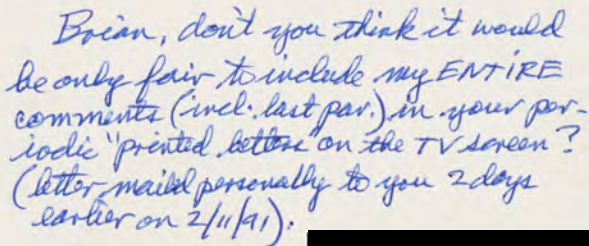 Brian, don't you think it would
be only fair to include my ENTIRE
comments (incl. last par.) in your per-
iodic "printed letters on the TV screen?
(letter mailed personally to you 2 days
earlier on 2/11/91).